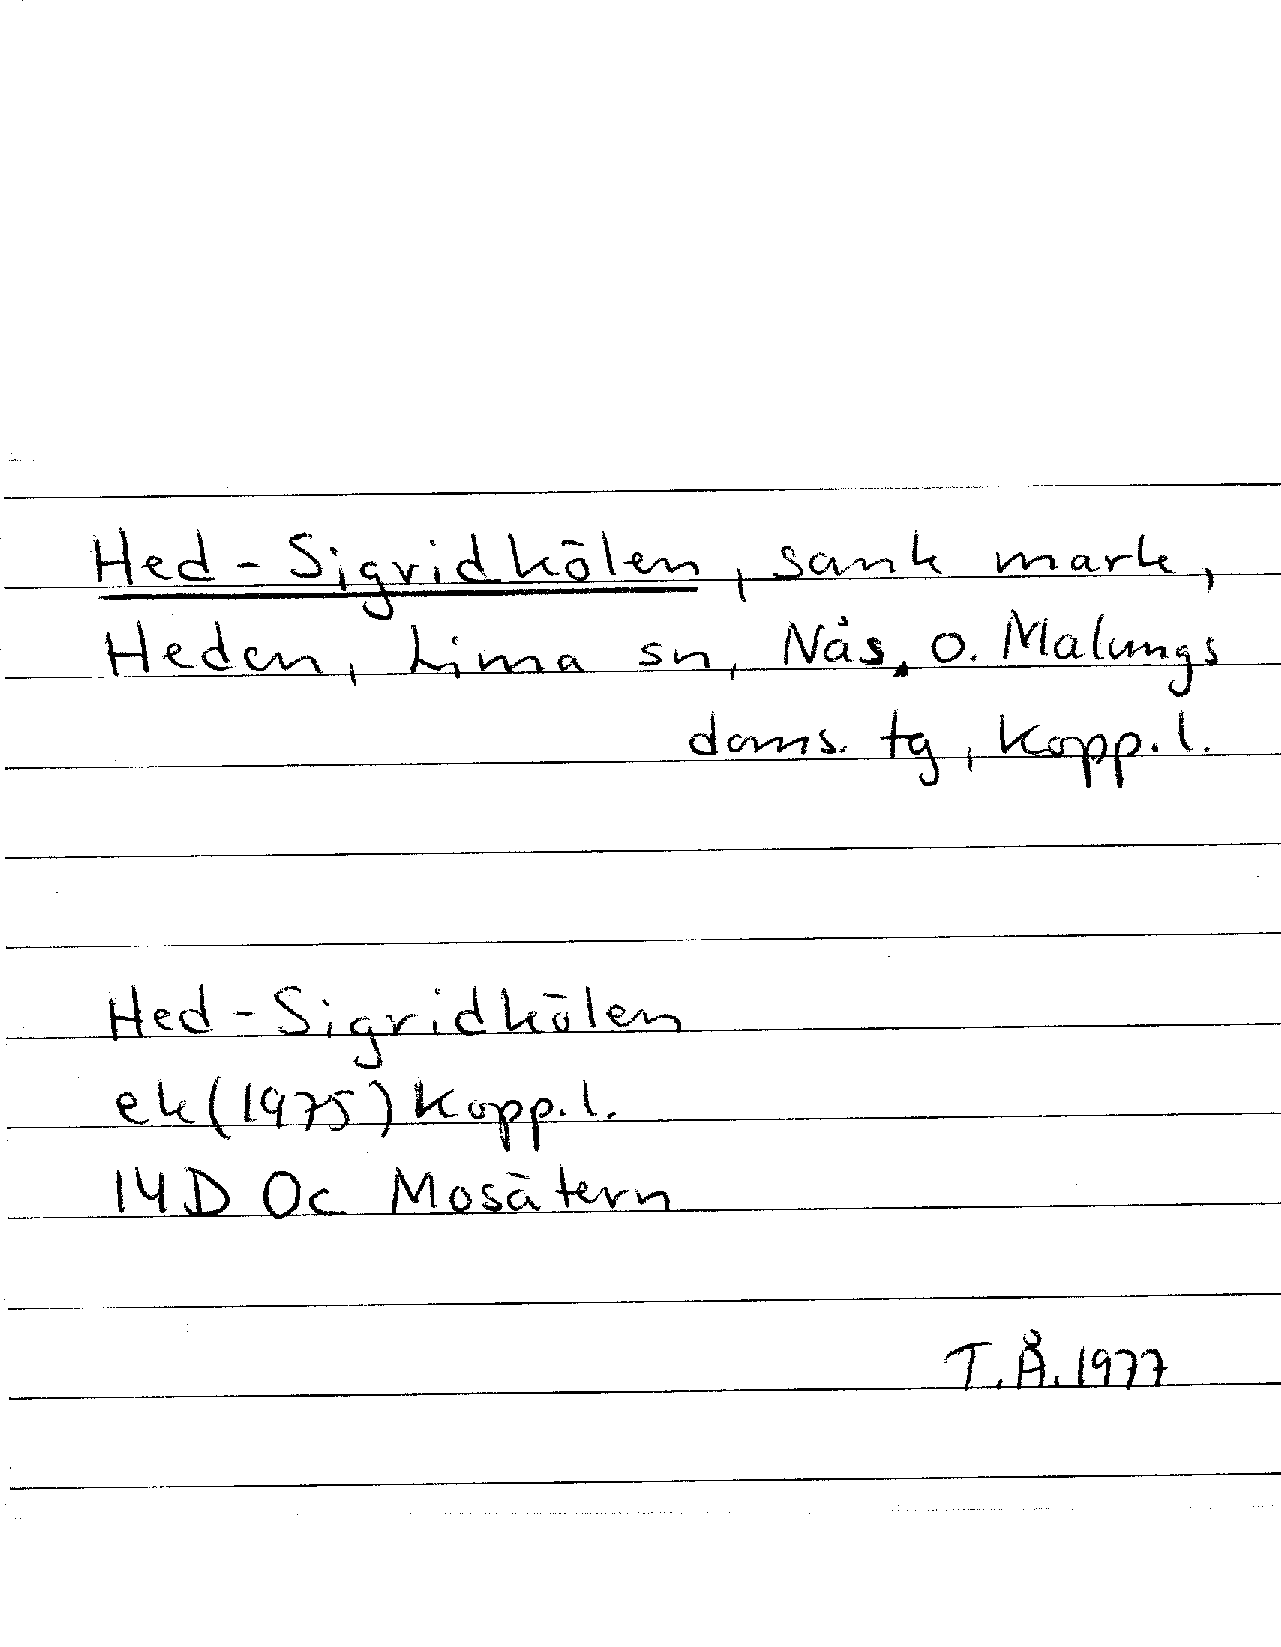 Hed-Sigridkölen, sank mark,
Heden, Lima sn, Nås o. Malungs
doms. tg, Kopp.l.
Hed-Sigridkölen
ek(1975) Kopp.l.
14D 0c Mosätern
T.Å. 1977